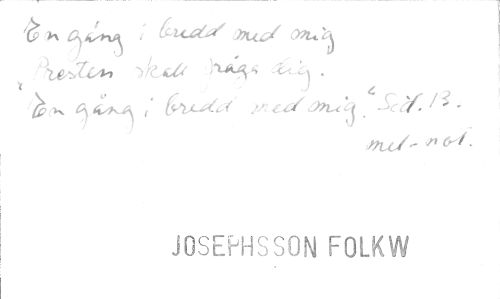 En gång i bredd med mig
Presten skall fråga dig.
"En gång i bredd med mig." Sid. 13.
mel-not.
JOSEPHSSON FOLKW